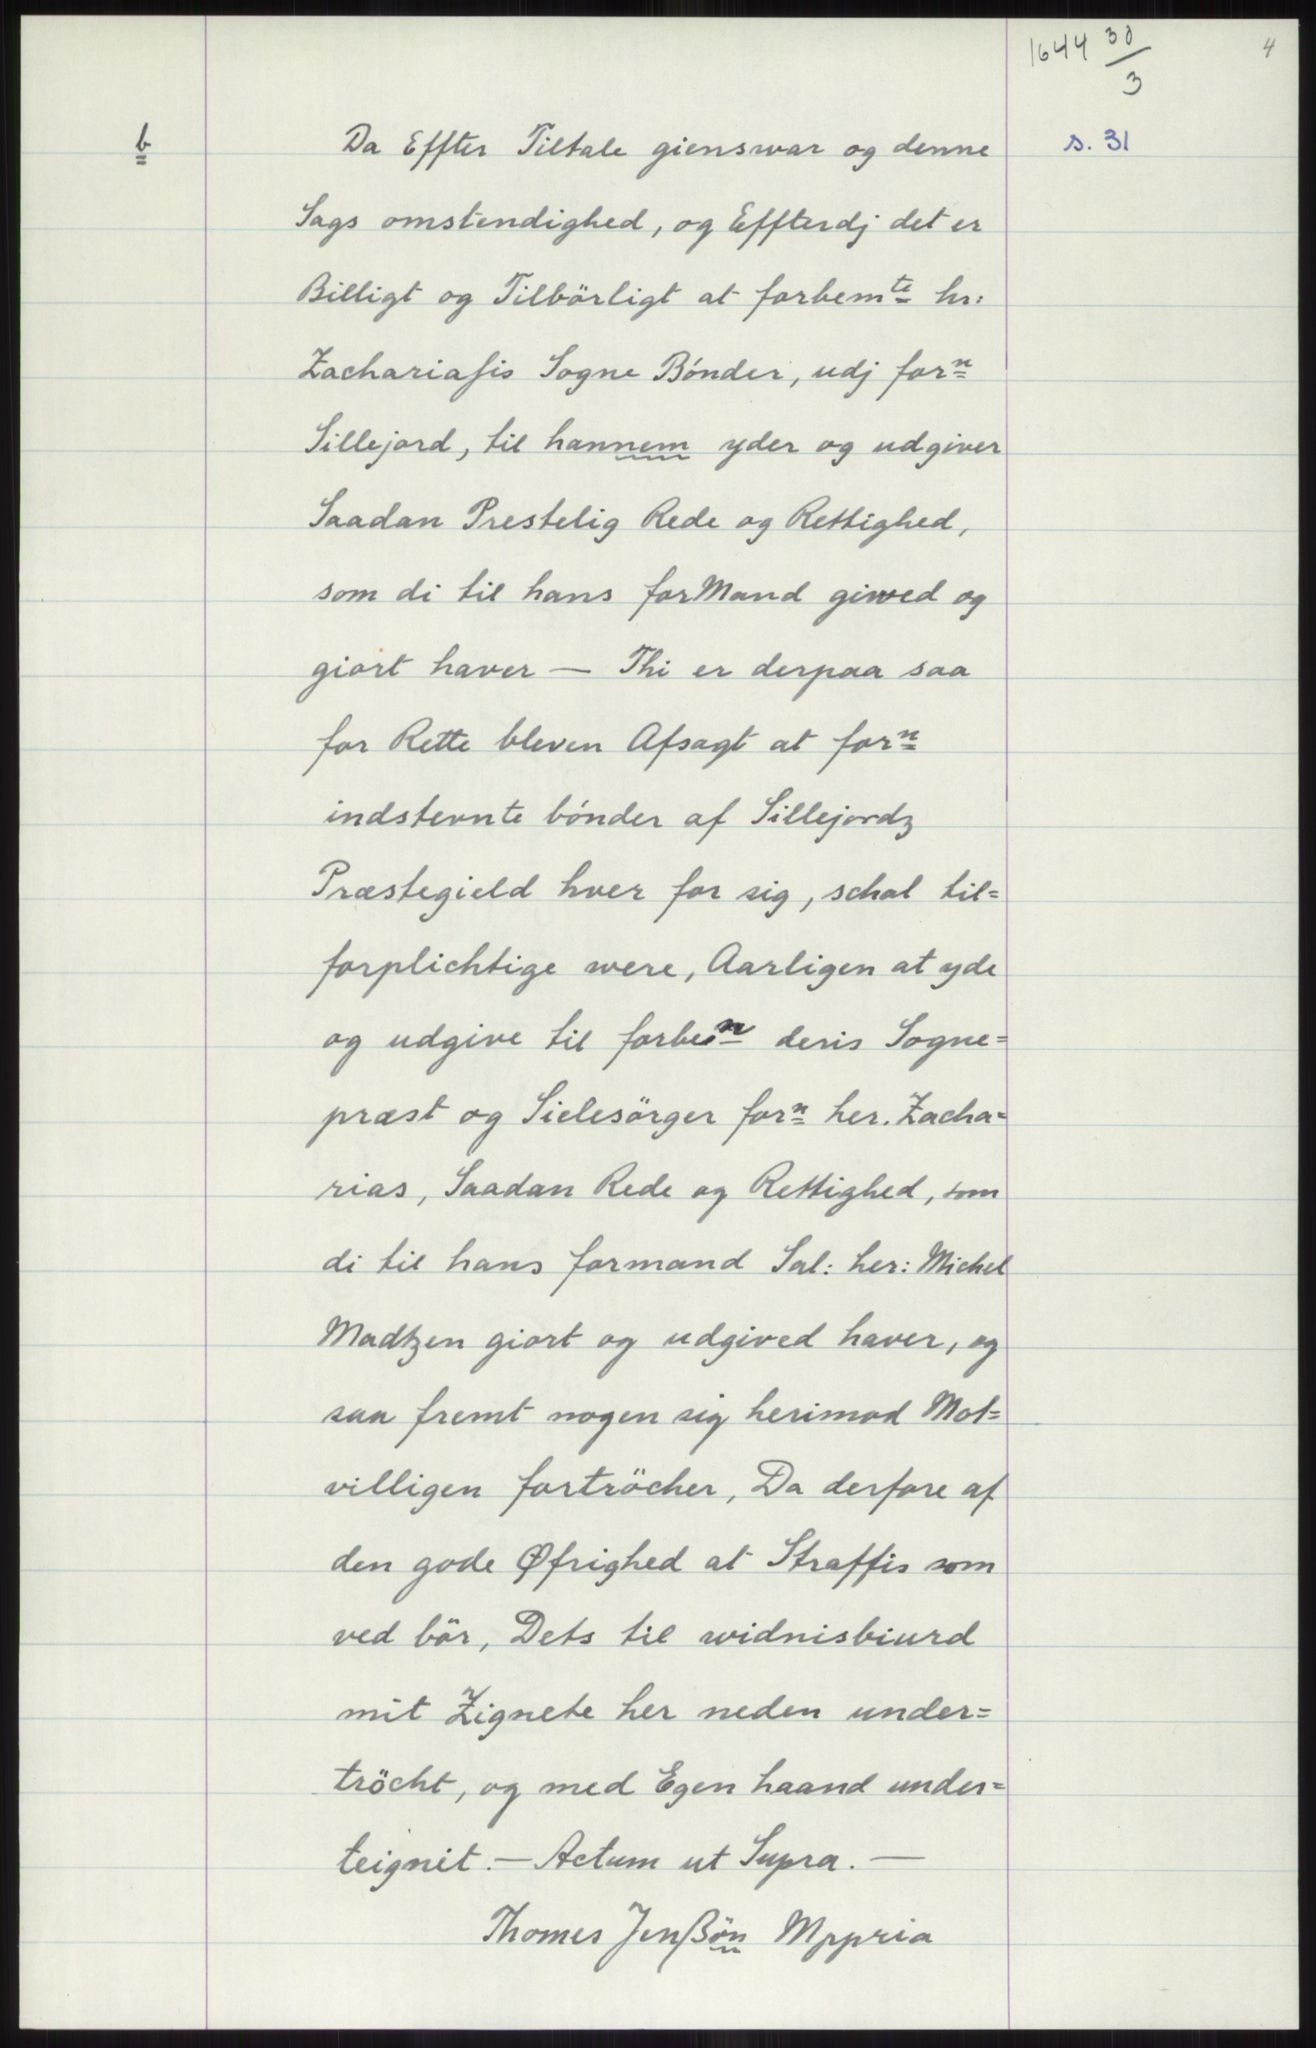 1644 30/3
4
b
s. 31
Da Effter Tiltale gienswar og denne
Sags omstendighed, og Effterdj det er
Billigt og Tilbörligt at forbemte hr:
Zachariasis Sogne Bónder, udj forn
Sillejord, til hannem yder og udgiver
Saadan Prestelig Rede og Rettighed,
som di til hans forMand giwed og
giort haver — Thi er derpaa saa
for Rette bleven Afsagt at forn
indstevnte bónder af Sillejordz
Præstegield hver for sig, schal til=
forplichtige were, Aarligen at yde
og udgive til forben deris Sogne=
præst og Sielesörger forn her. Zacha=
rias, Saadan Rede og Rettighed, som
di til hans formand Sal: her: Michel
Madtzen giort og udgived haver, og
saa fremt nogen sig herimod Mot=
villigen fortröcher, Da derfore af
den gode Øfrighed at Straffis som
ved bör, Dets til widnisbiurd
mit Zignete her neden under=
tröcht, og med Egen haand under=
teignit. — Actum ut Supra. —
Thomes JenßÖn Mppria